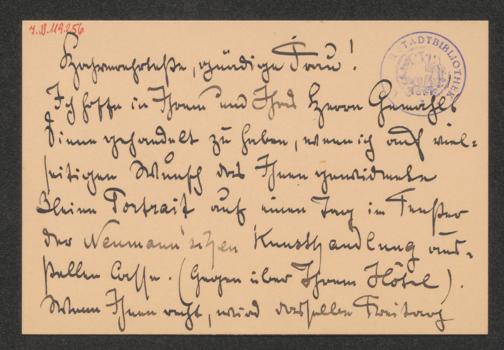 J.N. 119.256
STADTBIBLIOTHEK
Hochverehrteste, gnädige Frau!
Ich hoffe in Ihrem und Ihres Herrn Gemahls
Sinne gehandelt zu haben, wenn ich auf viel-
seitigen Wunsch das Ihnen gewidmete
kleine Portrait auf einen Tag im Fenster
der Neumann'schen Kunsthandlung aus-
stellen lasse. (Gegenüber Ihrem Hôtel).
Wenn Ihnen recht, wird dasselbe Freitag